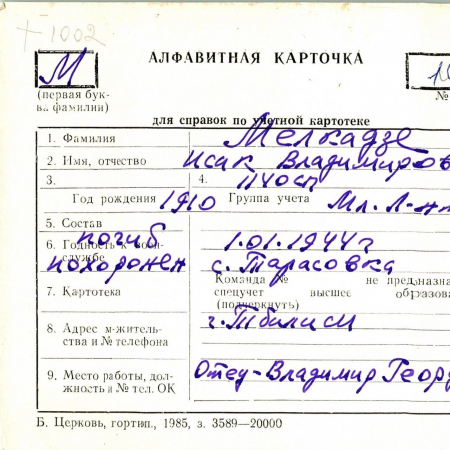 + 1002
АЛФАВИТНАЯ КАРТОЧКА
М
(первая бук-
ва фамилии)
№
для справок по учетной картотеке
1. Фамилия Мелкадзе
2. Имя, отчество Исак Владимиров
3. 4. 1140сп
Год рождения 1910 Группа учета Мл. Л-нт
5. Состав
погиб 1.01.1944г
6. Годность к воен-
службе
похоронен с. Тарасовка
Команда № не предназна
7. Картотека спецучет высшее образова
(подчеркнуть)
8. Адрес м-житель-
ства и № телефона
г. Тбилиси
9. Место работы, дол-
жность и № тел. ОК
Отец-Владимир Геор
Б. Церковь, гортип., 1985, з. 3589—20000